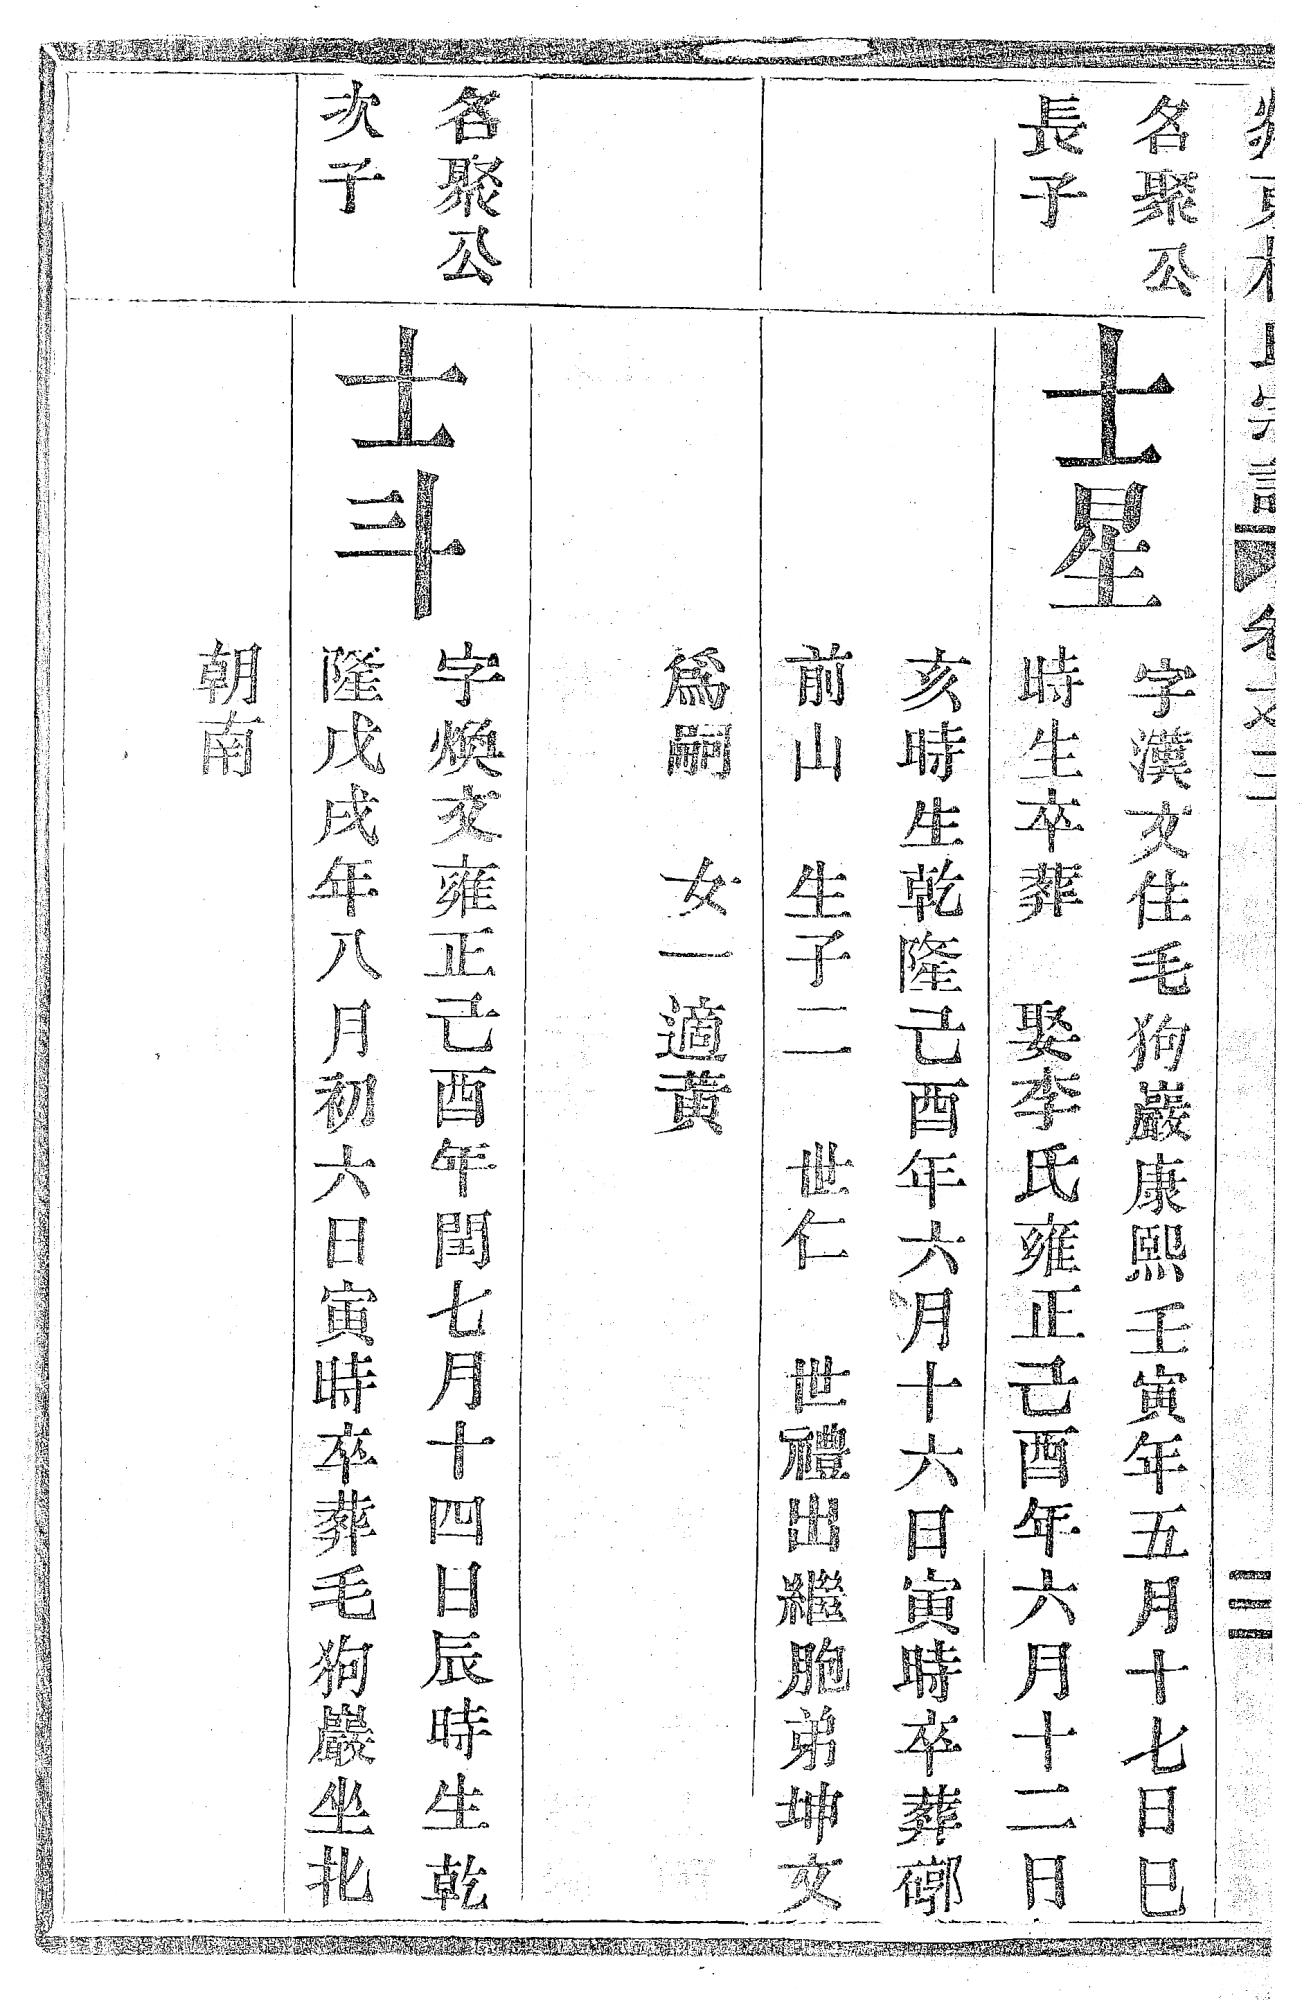 氏宗譜 卷 三
名聚公
長子
士星
字漢文住毛狗巖康熙壬寅年五月十七日巳
時生卒葬 娶李氏雍正己酉年六月十二日
亥時生乾隆己酉年六月十六日寅時卒葬鄉
前山 生子二 世仁 世禮出繼胞弟坤文
爲嗣 女一適黃
名聚公
次子
士斗
字煥文雍正己酉年閏七月十四日辰時生乾
隆戊戌年八月初六日寅時卒葬毛狗巖坐北
朝南